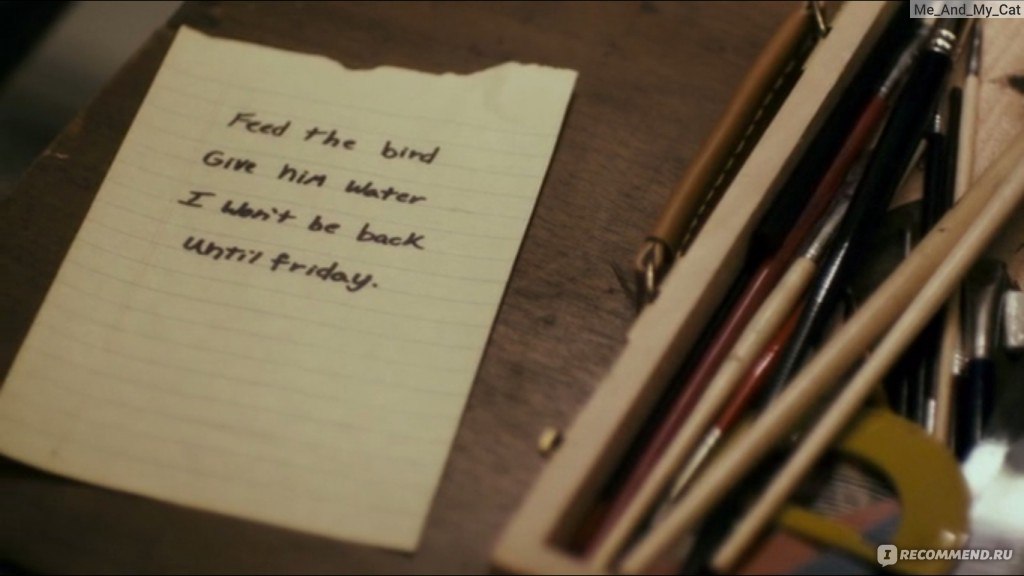 Me_And_My_Cat
Feed the bird
Give him water
I won't be back
Until friday.
IRECOMMEND.RU